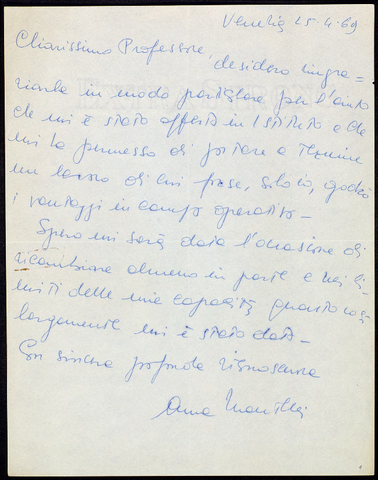 Venezia 25.4.69
Chiarissimo Professore,
desidero ringra=
ziarla in modo particolare per l'aiuto
che mi è stato offerto in Istituto e che
mi ha permesso di portare a termine
un lavoro di cui forse, solo io, godrò
i vantaggi in campo operativo -
Spero mi sarà data l'occasione di
ricambiare almeno in parte e nei li=
miti delle mie capacità quanto così
largamente mi è stato dato -
Con sincera profonda riconoscenza
Anna